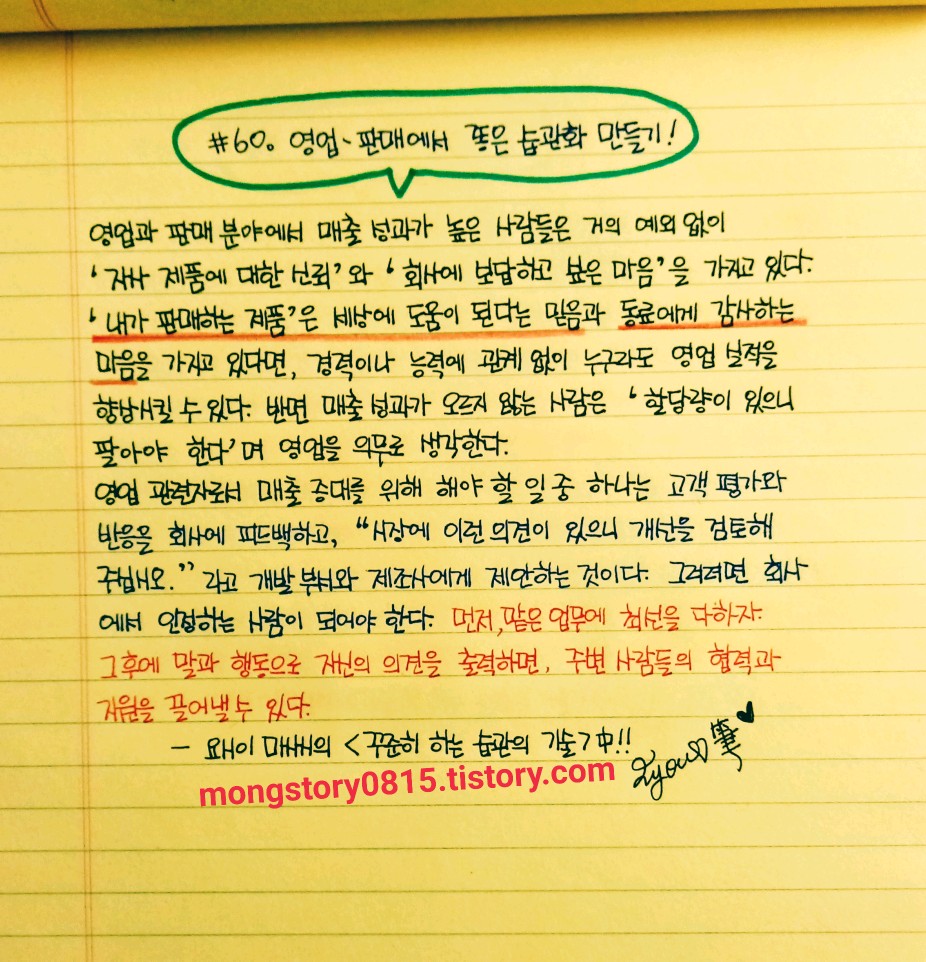 #60. 영업·판매에서 좋은 습관화 만들기!
영업과 판매 분야에서 매출 성과가 높은 사람들은 거의 예외 없이
'자사 제품에 대한 신뢰'와 '회사에 보답하고 싶은 마음'을 가지고 있다.
'내가 판매하는 제품'은 세상에 도움이 된다는 믿음과 동료에게 감사하는
마음을 가지고 있다면, 경력이나 능력에 관계 없이 누구라도 영업 실적을
향상시킬 수 있다. 반면 매출 성과가 오르지 않는 사람은 '할당량이 있으니
팔아야 한다'며 영업을 의무로 생각한다.
영업 관련자로서 매출 증대를 위해 해야 할 일 중 하나는 고객 평가와
반응을 회사에 피드백하고, "시장에 이런 의견이 있으니 개선을 검토해
주십시오."라고 개발 부서와 제조사에게 제안하는 것이다. 그러려면 회사
에서 인정하는 사람이 되어야 한다. 먼저, 맡은 업무에 최선을 다하자.
그 후에 말과 행동으로 자신의 의견을 출력하면, 주변 사람들의 협력과
지원을 끌어낼 수 있다.
- 요시이 마사시의 <꾸준히 하는 습관의 기술>中!!
2you♡筆
mongstory0815.tistory.com